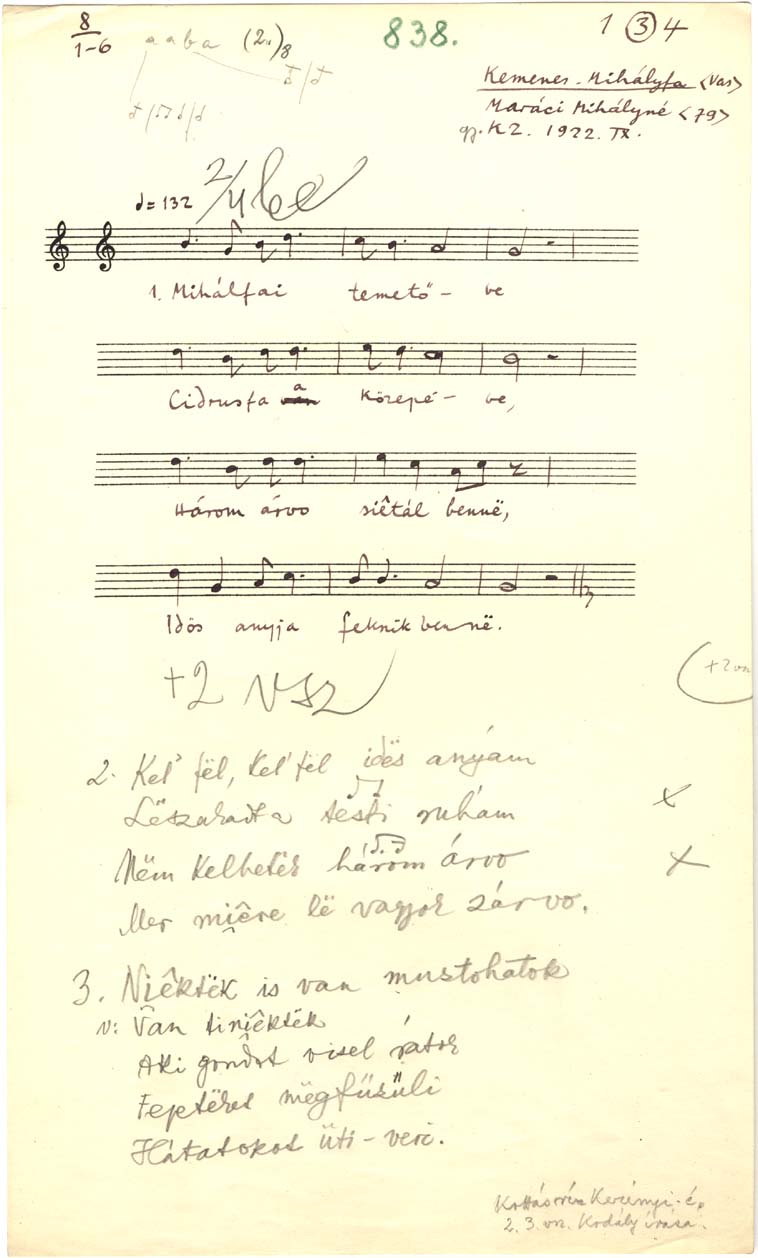 8
1-6
a a b a (2.)8
838.
1 3 4
Kemenes-Mihályfa <Vas>
Maráci Mihályné <79>
gy. KZ. 1922. IX.
= 132
2/4 be
1. Mihálfai temető- be
Cidrusfa a közepé- be,
Három árvo siêtál bennë,
Idös anyja feknik bennë.
+2 VSZ
+2 vsz
2. Kel' fël, kel' fël idës anyám
Lëszakadt a testi ruhám
Nëm kelhetëk három árvo
Mer miêre lë vagyok zárvo.
3. Niêktëk is van mustohatok
v: Van tiniêktëk
Aki gondot visel rátok
Fejtëket mëgfüsüli
Hátatokot üti-veri.
Kottásrész Kerényi é.
2. 3. vsz. Kodály írása.